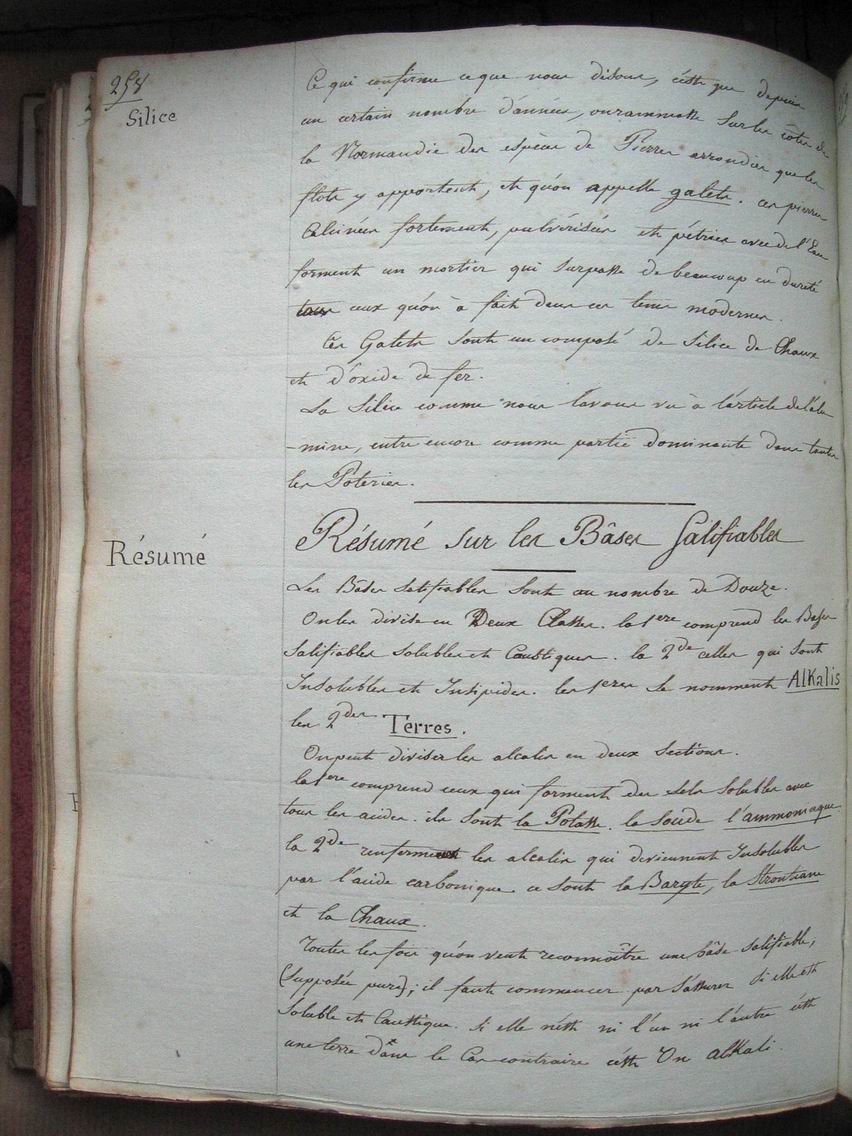 258
Silice
Ce qui confirme ce que nous disons, c'est que depuis
un certain nombre d'années, on rammasse sur les côtes de
la Normandie des espèces de Pierres arrondies que les
flots y apportent, et qu'on appelle galets. ces pierres
Calcinées fortement, pulvérisées et pétries avec de l'Eau
forment un mortier qui surpasse de beaucoup en dureté
tous ceux qu'on à fait dans ces tems modernes.
Ces Galets sont un composé de Silice de Chaux
et d'oxide de fer.
La Silice comme nous l'avons vu à l'article de l'alu
-mine, entre encore comme partie dominante dans toutes
les Poteries.
Résumé
Résumé sur les Bâses Salifiables
Les Bâses salifiables sont au nombre de Douze.
On les divise en Deux Classes. la 1ere comprend les Bases
salifiables solubles et Caustiques. la 2de celles qui sont
Insolubles et Insipides. les 1eres se nomment AlKalis
les 2des Terres.
On peut diviser les alcalis en deux sections.
la 1ere comprend ceux qui forment des sels solubles avec
tous les acides. ils sont la Potasse. la soude l'ammoniaque
la 2de renferme les alcalis qui deviennent Insolubles
par l'acide carbonique. ce sont la Baryte, la Strontiane
et la Chaux.
Toutes les fois qu'on veut reconnoître une bâse salifiable,
(supposée pure); il faut commencer par s'assurer si elle est
soluble et Caustique. si elle n'est ni l'un ni l'autre c'est
une terre dans le Cas contraire c'est Un alKali.